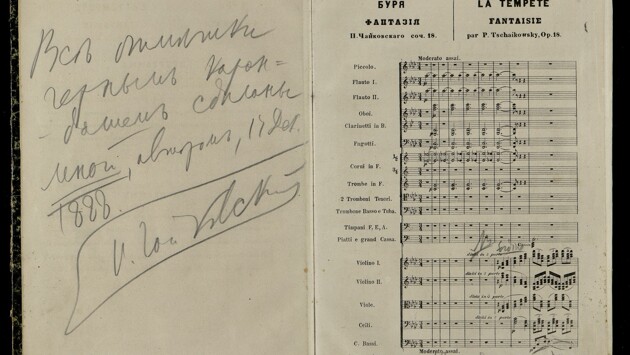 Всѣ отмѣтки
чернымъ каран-
-дашемъ сдѣланы
мной, авторомъ, 17 Дек.
1888.
П. Чайковскій
БУРЯ
ФАНТАЗІЯ
П. Чайковскаго соч. 18.
LA TEMPÊTE
FANTAISIE
par P. Tschaikowsky, Op. 18.
Moderato assai.
Piccolo.
Flauto I.
Flauto II.
Oboi.
Clarinetti in B.
Fagotti.
Corni in F.
Trombe in F.
2 Tromboni Tenori.
Trombone Basso e Tuba.
Timpani F, E, A.
Piatti e grand Cassa.
Violino I.
Violino II.
Viole.
Celli.
C. Bassi.
Moderato assai.